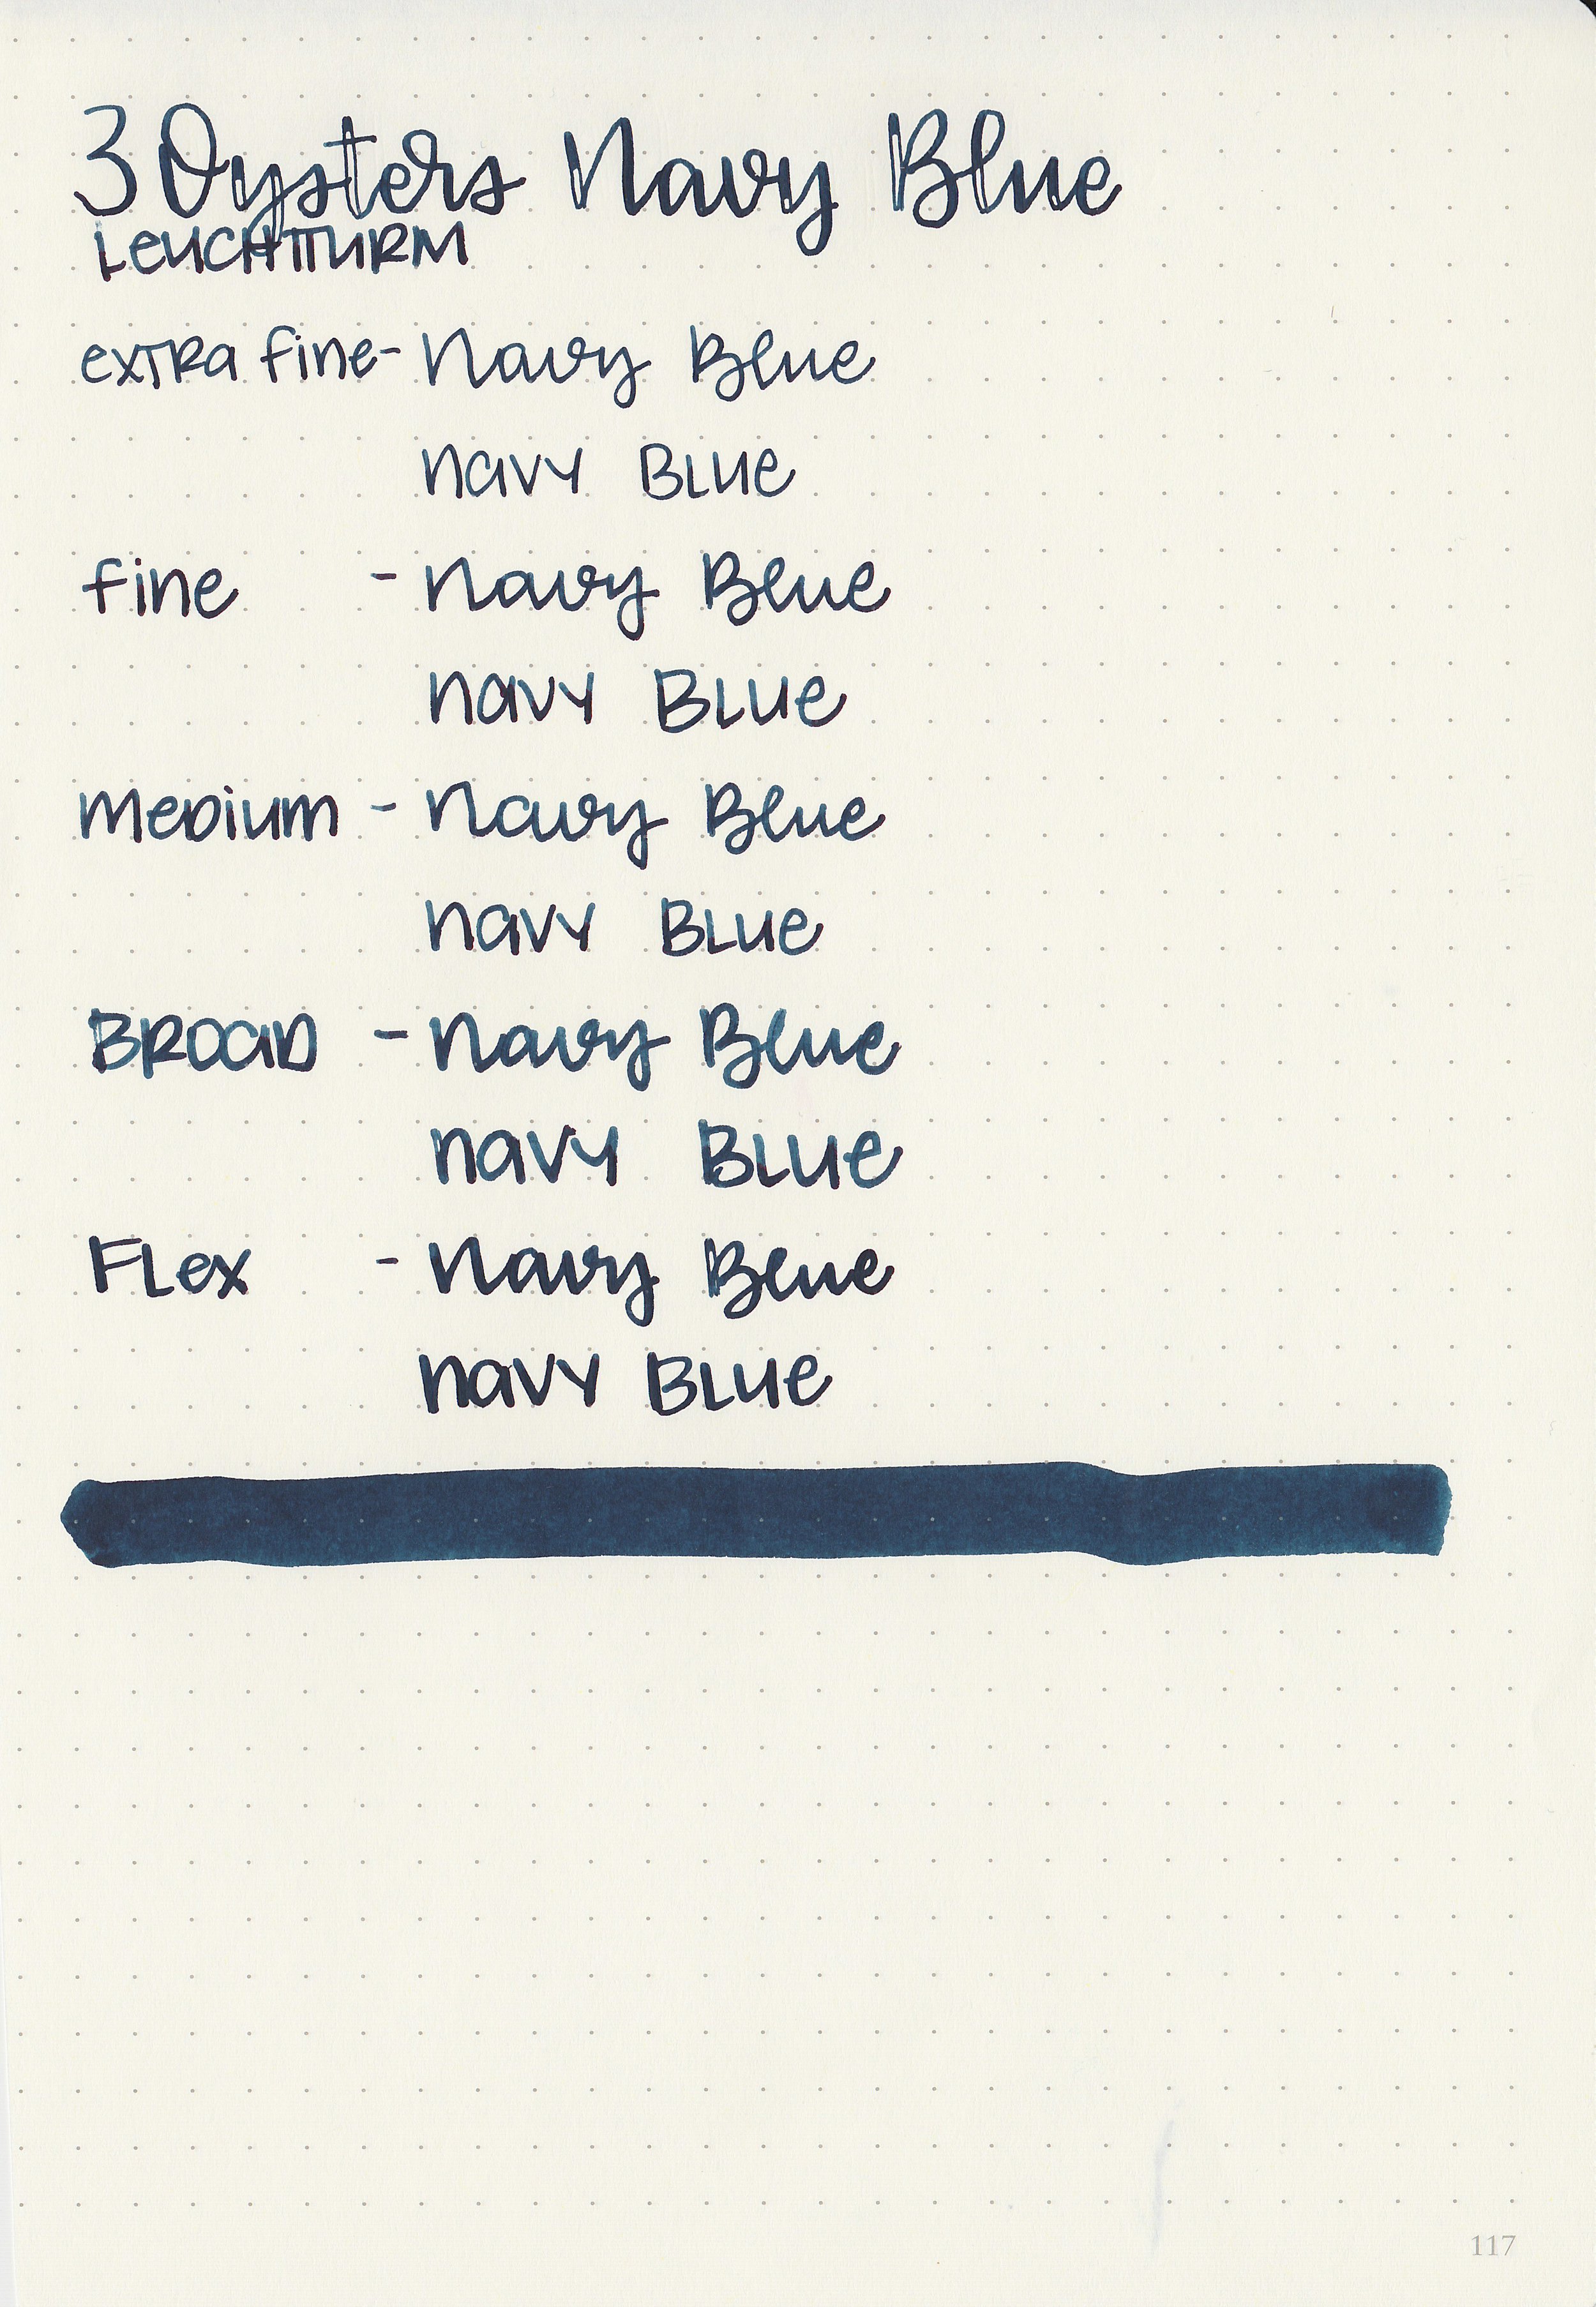 3 Oysters Navy Blue
LEUCHTTURM
exTRa fine - Navy Blue
navy BLUe
fine - Navy Blue
navy BLUe
MeDium - Navy Blue
navy BLUe
BROaD - Navy Blue
navy BLUe
FLex - Navy Blue
navy BLUe
117